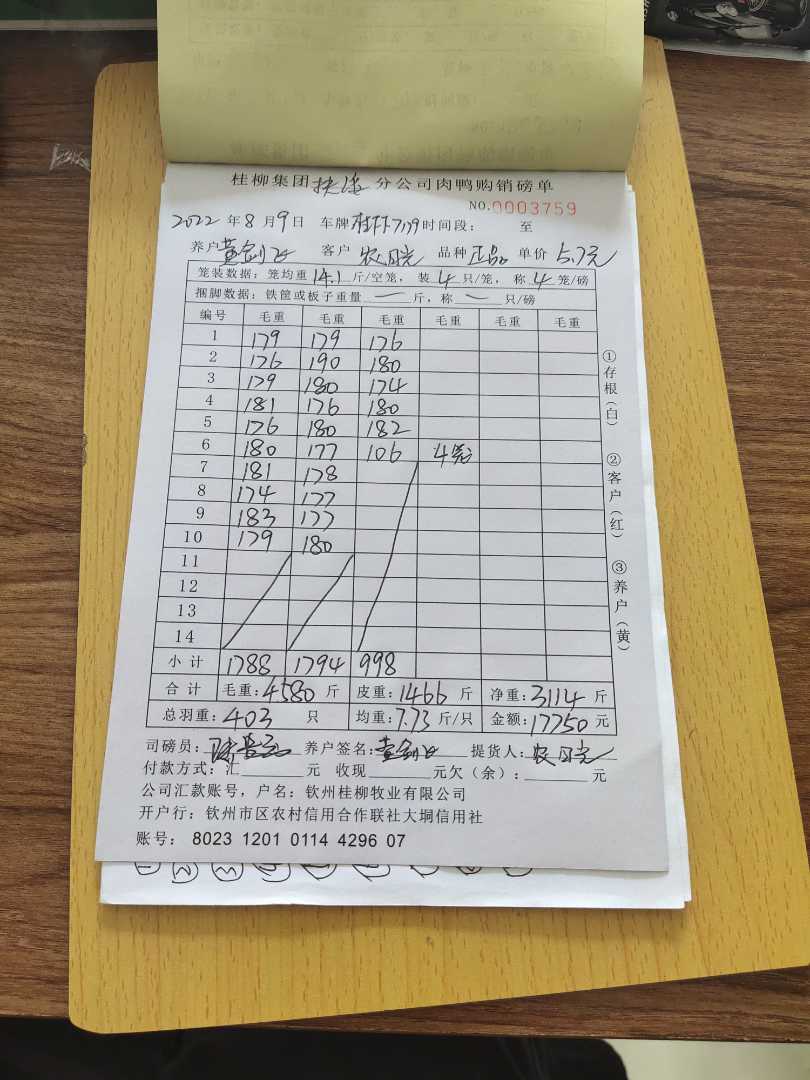 桂柳集团 扶海 分公司肉鸭购销磅单
NO.0003759
2022 年 8 月 9 日 车牌 桂 7179 时间段: 至
养户 黄 客户 农 品种 正品 单价 5.7元
笼装数据: 笼均重 14.1 斤/空笼, 装 4 只/笼, 称 4 笼/磅
捆脚数据: 铁筐或板子重量 — 斤, 称 — 只/磅
编号 毛重 毛重 毛重 毛重 毛重 毛重
1 179 179 176
2 176 190 180
3 179 180 174
4 181 176 180
5 176 180 182
6 180 177 106 4笼
7 181 178
8 174 177
9 183 177
10 179 180
11
12
13
14
小计 1788 1794 998
合计 毛重: 4580 斤 皮重: 1466 斤 净重: 3114 斤
总羽重: 403 只 均重: 7.73 斤/只 金额: 17750 元
司磅员: 养户签名: 黄 提货人: 农
付款方式: 汇 元 收现 元欠(余): 元
公司汇款账号, 户名: 钦州桂柳牧业有限公司
开户行: 钦州市区农村信用合作联社大垌信用社
账号: 8023 1201 0114 4296 07
①存根(白)
②客户(红)
③养户(黄)